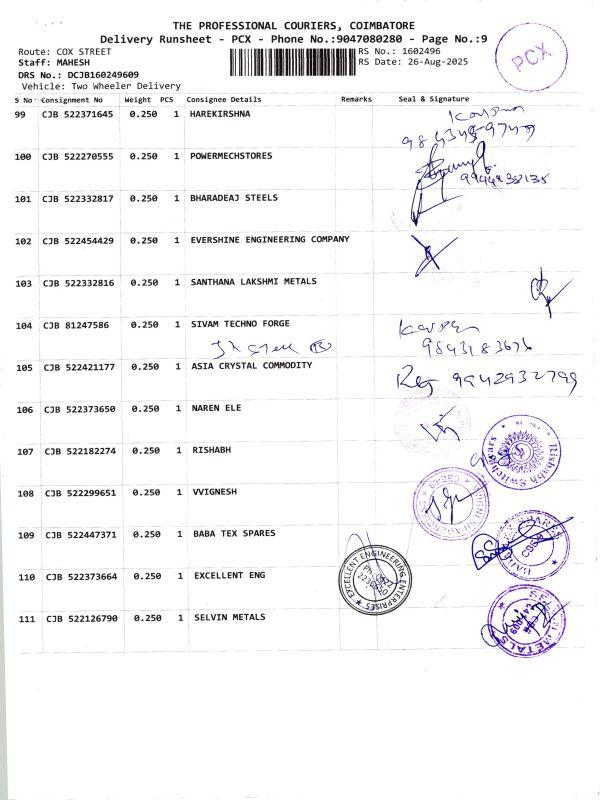 THE PROFESSIONAL COURIERS, COIMBATORE
Delivery Runsheet - PCX - Phone No.:9047080280 - Page No.:9
Route: COX STREET
RS No.: 1602496
Staff: MAHESH
RS Date: 26-Aug-2025
DRS No.: DCJB160249609
Vehicle: Two Wheeler Delivery
PCX
S No Consignment No Weight PCS Consignee Details Remarks Seal & Signature
99 CJB 522371645 0.250 1 HAREKIRSHNA
100 CJB 522270555 0.250 1 POWERMECHSTORES
101 CJB 522332817 0.250 1 BHARADEAJ STEELS
102 CJB 522454429 0.250 1 EVERSHINE ENGINEERING COMPANY
103 CJB 522332816 0.250 1 SANTHANA LAKSHMI METALS
104 CJB 81247586 0.250 1 SIVAM TECHNO FORGE
105 CJB 522421177 0.250 1 ASIA CRYSTAL COMMODITY
9942932799
106 CJB 522373650 0.250 1 NAREN ELE
107 CJB 522182274 0.250 1 RISHABH
Rishabh Switchgears
108 CJB 522299651 0.250 1 VVIGNESH
109 CJB 522447371 0.250 1 BABA TEX SPARES
110 CJB 522373664 0.250 1 EXCELLENT ENG
EXCELLENT ENGINEERING ENTERPRISES
111 CJB 522126790 0.250 1 SELVIN METALS
SELVIN METALS